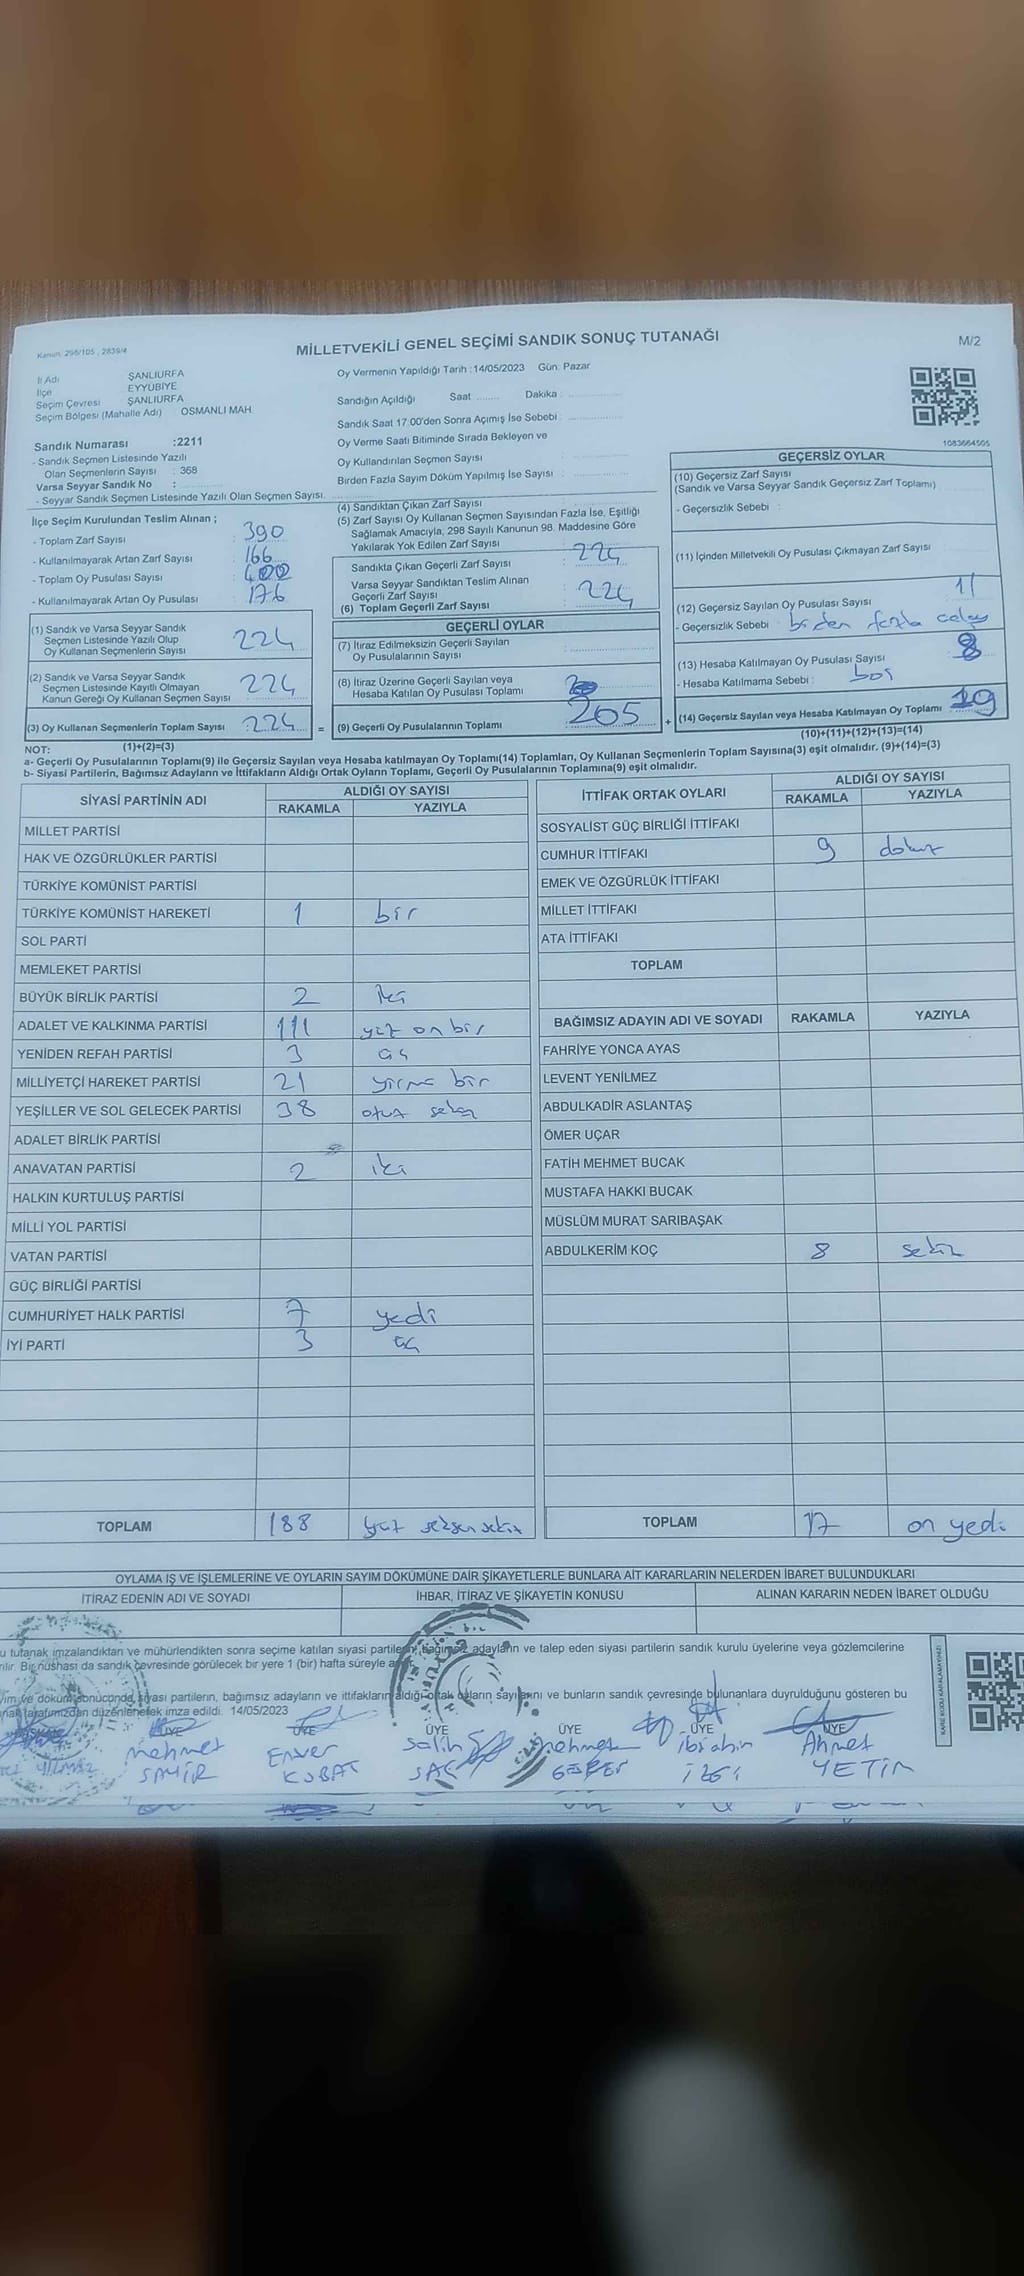 Kanun: 298/105 , 2839/4
MİLLETVEKİLİ GENEL SEÇİMİ SANDIK SONUÇ TUTANAĞI
M/2
İl Adı ŞANLIURFA
İlçe EYYÜBİYE
Seçim Çevresi ŞANLIURFA
Seçim Bölgesi (Mahalle Adı) OSMANLI MAH
Sandık Numarası :2211
- Sandık Seçmen Listesinde Yazılı
Olan Seçmenlerin Sayısı : 368
Varsa Seyyar Sandık No :
- Seyyar Sandık Seçmen Listesinde Yazılı Olan Seçmen Sayısı.
Oy Vermenin Yapıldığı Tarih :14/05/2023 Gün: Pazar
Sandığın Açıldığı Saat ........ Dakika :
Sandık Saat 17:00'den Sonra Açımış İse Sebebi :
Oy Verme Saati Bitiminde Sırada Bekleyen ve
Oy Kullandırılan Seçmen Sayısı :
Birden Fazla Sayım Döküm Yapılmış İse Sayısı :
1083664505
İlçe Seçim Kurulundan Teslim Alınan ;
- Toplam Zarf Sayısı : 390
- Kullanılmayarak Artan Zarf Sayısı : 166
- Toplam Oy Pusulası Sayısı : 400
- Kullanılmayarak Artan Oy Pusulası : 176
(1) Sandık ve Varsa Seyyar Sandık
Seçmen Listesinde Yazılı Olup
Oy Kullanan Seçmenlerin Sayısı 224
(2) Sandık ve Varsa Seyyar Sandık
Seçmen Listesinde Kayıtlı Olmayan
Kanun Gereği Oy Kullanan Seçmen Sayısı 224
(3) Oy Kullanan Seçmenlerin Toplam Sayısı : 224 =
(4) Sandıktan Çıkan Zarf Sayısı
(5) Zarf Sayısı Oy Kullanan Seçmen Sayısından Fazla İse, Eşitliği
Sağlamak Amacıyla, 298 Sayılı Kanunun 98. Maddesine Göre
Yakılarak Yok Edilen Zarf Sayısı
Sandıkta Çıkan Geçerli Zarf Sayısı : 224
Varsa Seyyar Sandıktan Teslim Alınan
Geçerli Zarf Sayısı : 224
(6) Toplam Geçerli Zarf Sayısı
GEÇERLİ OYLAR
(7) İtiraz Edilmeksizin Geçerli Sayılan
Oy Pusulalarının Sayısı
(8) İtiraz Üzerine Geçerli Sayılan veya
Hesaba Katılan Oy Pusulası Toplamı
(9) Geçerli Oy Pusulalarının Toplamı 205 +
GEÇERSİZ OYLAR
(10) Geçersiz Zarf Sayısı
(Sandık ve Varsa Seyyar Sandık Geçersiz Zarf Toplamı)
- Geçersizlik Sebebi :
(11) İçinden Milletvekili Oy Pusulası Çıkmayan Zarf Sayısı
(12) Geçersiz Sayılan Oy Pusulası Sayısı 11
- Geçersizlik Sebebi : birden fazla
(13) Hesaba Katılmayan Oy Pusulası Sayısı 8
- Hesaba Katılmama Sebebi : boş
(14) Geçersiz Sayılan veya Hesaba Katılmayan Oy Toplamı 19
(10)+(11)+(12)+(13)=(14)
NOT: (1)+(2)=(3)
a- Geçerli Oy Pusulalarının Toplamı(9) ile Geçersiz Sayılan veya Hesaba katılmayan Oy Toplamı(14) Toplamları, Oy Kullanan Seçmenlerin Toplam Sayısına(3) eşit olmalıdır. (9)+(14)=(3)
b- Siyasi Partilerin, Bağımsız Adayların ve İttifakların Aldığı Ortak Oyların Toplamı, Geçerli Oy Pusulalarının Toplamına(9) eşit olmalıdır.
SİYASİ PARTİNİN ADI
ALDIĞI OY SAYISI
RAKAMLA YAZIYLA
MİLLET PARTİSİ
HAK VE ÖZGÜRLÜKLER PARTİSİ
TÜRKİYE KOMÜNİST PARTİSİ
TÜRKİYE KOMÜNİST HAREKETİ 1 bir
SOL PARTİ
MEMLEKET PARTİSİ
BÜYÜK BİRLİK PARTİSİ 2 iki
ADALET VE KALKINMA PARTİSİ 111 yüz on bir
YENİDEN REFAH PARTİSİ 3 üç
MİLLİYETÇİ HAREKET PARTİSİ 21 yirmi bir
YEŞİLLER VE SOL GELECEK PARTİSİ 38 otuz sekiz
ADALET BİRLİK PARTİSİ
ANAVATAN PARTİSİ 2 iki
HALKIN KURTULUŞ PARTİSİ
MİLLİ YOL PARTİSİ
VATAN PARTİSİ
GÜÇ BİRLİĞİ PARTİSİ
CUMHURİYET HALK PARTİSİ 7 yedi
İYİ PARTİ 3 üç
TOPLAM 188 yüz seksen sekiz
İTTİFAK ORTAK OYLARI
ALDIĞI OY SAYISI
RAKAMLA YAZIYLA
SOSYALİST GÜÇ BİRLİĞİ İTTİFAKI
CUMHUR İTTİFAKI 9 dokuz
EMEK VE ÖZGÜRLÜK İTTİFAKI
MİLLET İTTİFAKI
ATA İTTİFAKI
TOPLAM
BAĞIMSIZ ADAYIN ADI VE SOYADI RAKAMLA YAZIYLA
FAHRİYE YONCA AYAS
LEVENT YENİLMEZ
ABDULKADİR ASLANTAŞ
ÖMER UÇAR
FATİH MEHMET BUCAK
MUSTAFA HAKKI BUCAK
MÜSLÜM MURAT SARIBAŞAK
ABDULKERİM KOÇ 8 sekiz
TOPLAM 17 on yedi
OYLAMA İŞ VE İŞLEMLERİNE VE OYLARIN SAYIM DÖKÜMÜNE DAİR ŞİKAYETLERLE BUNLARA AİT KARARLARIN NELERDEN İBARET BULUNDUKLARI
İTİRAZ EDENİN ADI VE SOYADI İHBAR, İTİRAZ VE ŞİKAYETİN KONUSU ALINAN KARARIN NEDEN İBARET OLDUĞU
u tutanak imzalandıktan ve mühürlendikten sonra seçime katılan siyasi partilerin, bağımsız adayların ve talep eden siyasi partilerin sandık kurulu üyelerine veya gözlemcilerine
rilir. Bir nüshası da sandık çevresinde görülecek bir yere 1 (bir) hafta süreyle
yım ve döküm sonucunda, siyasi partilerin, bağımsız adayların ve ittifakların aldığı ortak oyların sayılarını ve bunların sandık çevresinde bulunanlara duyrulduğunu gösteren bu
nak tarafımızdan düzenlenerek imza edildi. 14/05/2023
ÜYE ÜYE ÜYE ÜYE ÜYE ÜYE
YILMAZ mehmet Enver Salih mehmet ibrahim Ahmet
KUBAT SAÇ YETİM
KARE KODU KARALAMAYINIZ!